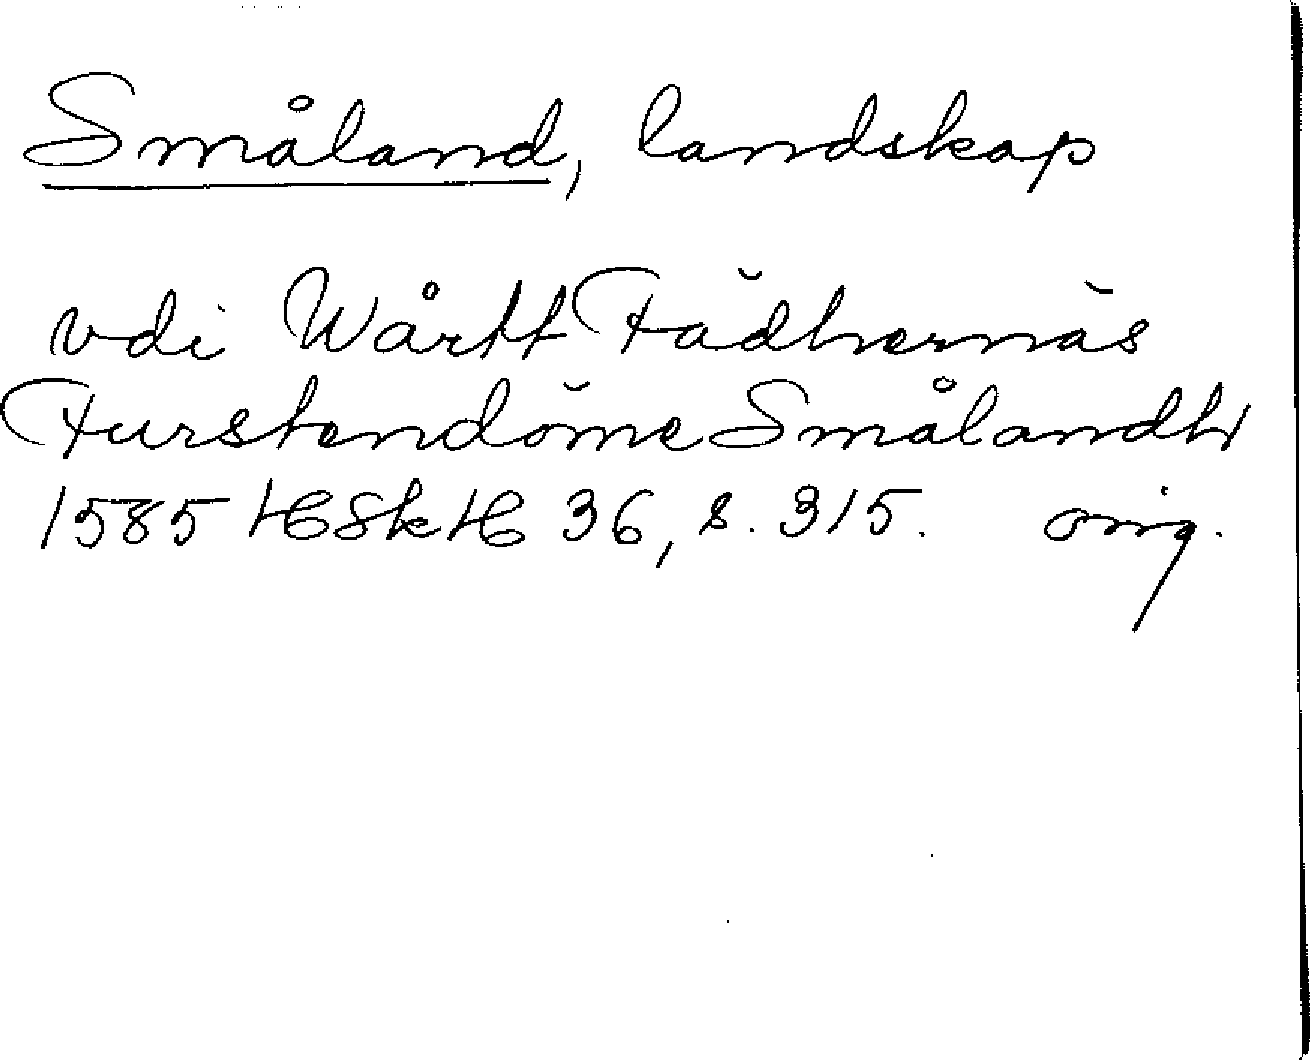 Småland, landskap
vdi Wårtt Fădhernăs
Furstendŏme Smålandh
1585 HSkH 36, s. 315. orig.